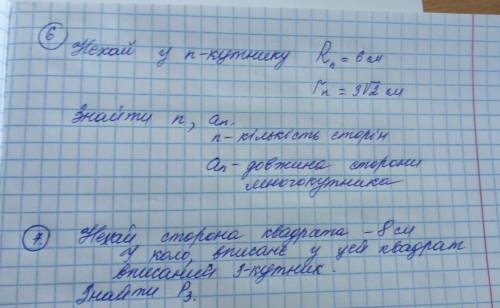 6
Нехай у n-кутнику Rn = 6 см
rn = 3√2 см
Знайти n, an.
n - кількость сторін
an - довжина сторони
многокутника
7. Нехай сторона квадрата - 8 см
У коло, вписане у цей квадрат
вписаний 3-кутник.
Знайти P3.